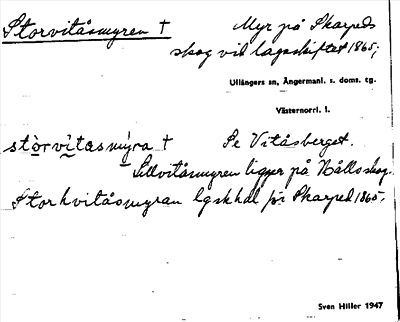 Storvitåsmyren †
Myr på Skarpeds
skog vid lagaskiftet 1865;
Ullångers sn, Ångermanl. s. doms. tg.
Västernorrl. l.
stòrvìtasmýra †
Se Vitåsberget.
Lillvitåsmyren ligger på Nålls skog.
Storhvitåsmyran lgskhdl för Skarped 1865;
Sven Hiller 1947